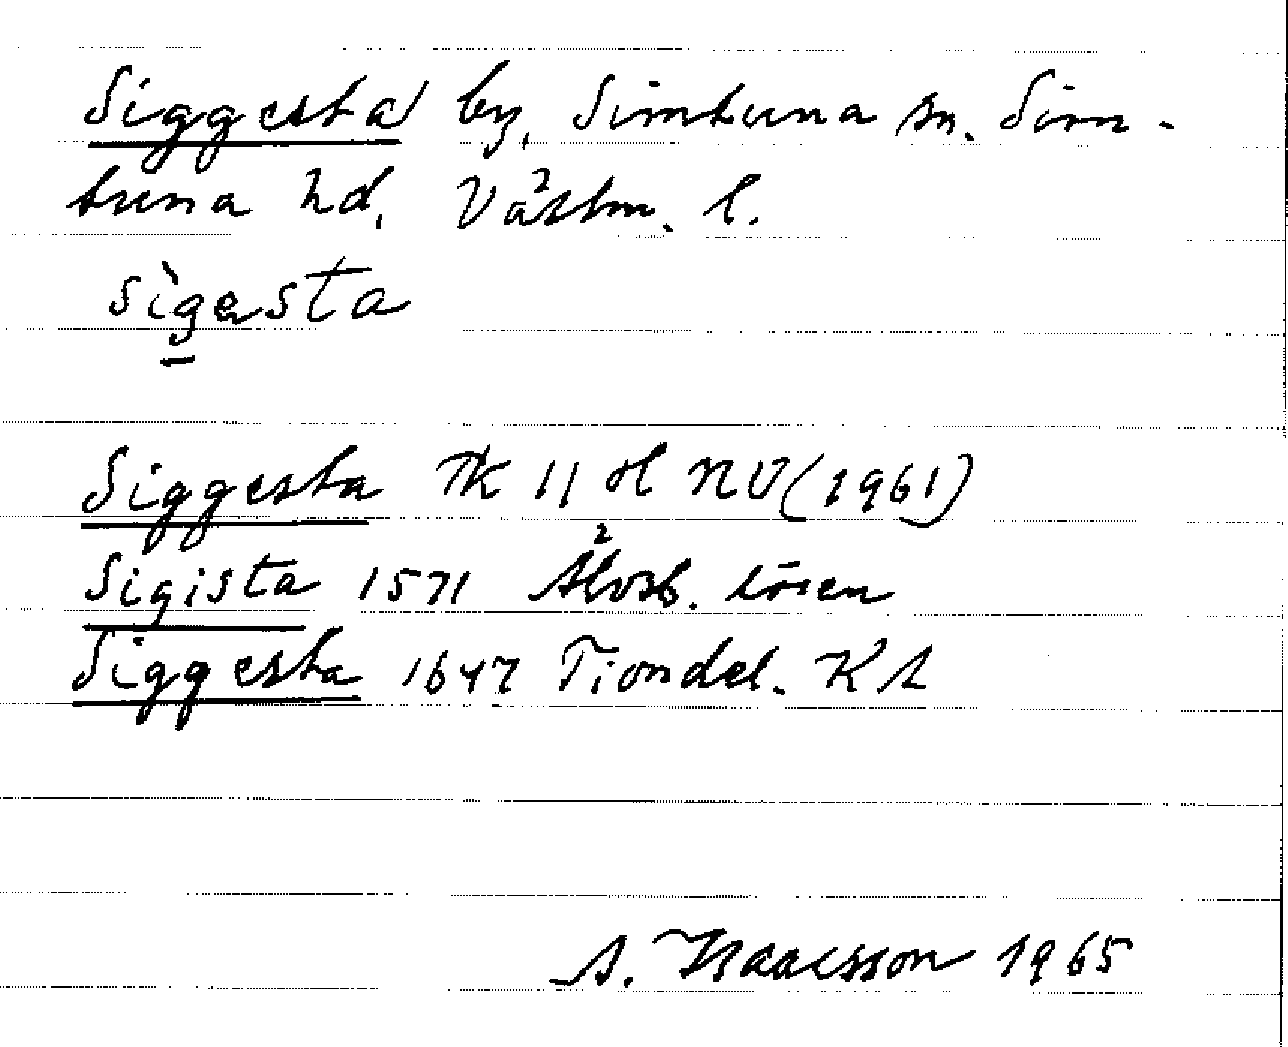 Siggesta by, Simtuna sn. Sim-
tuna hd. Västm. l.
sìgesta
Siggesta TK 11 H NV (1961)
Sigista 1571 Älvsb. lösen
Siggesta 1647 Tiondel. KA
A. Isaacsson 1965